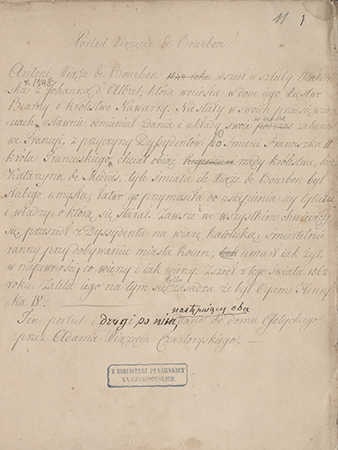 11
Portret Xiążęcia de Bourbon
Antoni Xiąże de Bourbon wszedł w szluby Małżeń-
r. 1548
ska z Johanną d'Albret, która wniosła w dom iego Xięstwo
Bearny i królestwo Nawarry. Niestały w swoich przedsięwzię-
ciach, ustawnie odmieniał zdania i układy swoie
we Francyi, z przyczyny Dyssydentów. Po śmierci Franciszka II
króla Francuskiego, chciał obiąć rządy królestwa, lecz
Katarzyna de Medicis, tyle śmiała ile Xiąże de Bourbon był
słabego umysłu, łatwo go przymusiła do ustąpienia iey tytułu
i władzy, o którą się starał. Zawsze we wszystkim chwieiący
się, przeszedł z Dyssydenta na wiarę katolicką, śmiertelnie
ranny przy dobywaniu miasta Rouen, umarł iak żył,
w niepewności co wierzy i iak wierzy. Zszedł z tego świata 1562
roku. Zaleta iego na tym się tylko zasadza że był Oycem Henry-
ka IV.
Ten portret i drugi po nim następujący oba
dano do domu Gotyckiego
przez Adama Xiążęcia Czartoryskiego.
Z BIBLIOTEKI PUŁAWSKIEY
XX. CZARTORYSKICH